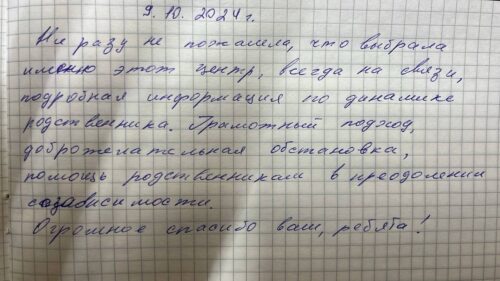 9.10.2024г.
Ни разу не пожалела, что выбрала
именно этот центр, всегда на связи,
подробная информация по динамике
родственника. Грамотный подход,
доброжелательная обстановка,
помощь родственникам в преодолении
созависимости.
Огромное спасибо вам, ребята!